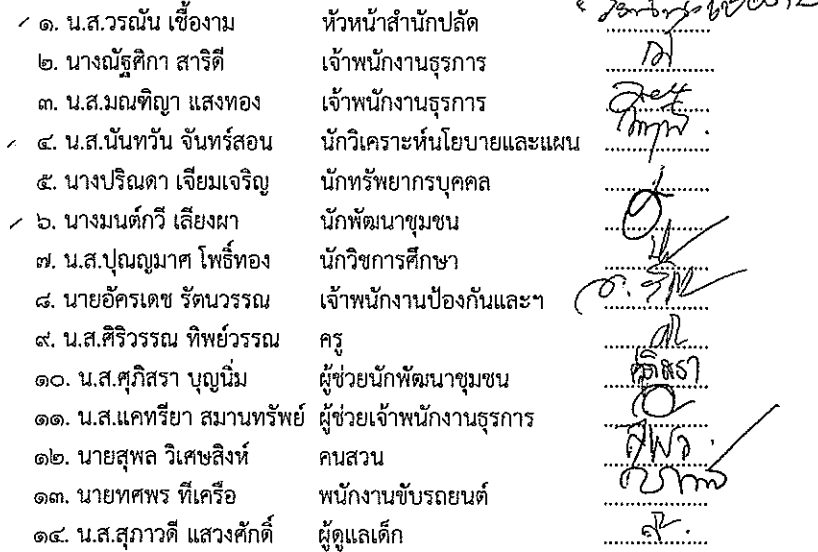 ๑. น.ส.วรณัน เชื้องาม หัวหน้าสำนักปลัด
๒. นางณัฐศิกา สาริดี เจ้าพนักงานธุรการ
๓. น.ส.มณฑิญา แสงทอง เจ้าพนักงานธุรการ
๔. น.ส.นันทวัน จันทร์สอน นักวิเคราะห์นโยบายและแผน
๕. นางปริณดา เจียมเจริญ นักทรัพยากรบุคคล
๖. นางมนต์กวี เลียงผา นักพัฒนาชุมชน
๗. น.ส.ปุณญมาศ โพธิ์ทอง นักวิชการศึกษา
๘. นายอัครเดช รัตนวรรณ เจ้าพนักงานป้องกันและฯ
๙. น.ส.ศิริวรรณ ทิพย์วรรณ ครู
๑๐. น.ส.ศุภิสรา บุญนิ่ม ผู้ช่วยนักพัฒนาชุมชน ศุภิสรา
๑๑. น.ส.แคทรียา สมานทรัพย์ ผู้ช่วยเจ้าพนักงานธุรการ
๑๒. นายสุพล วิเศษสิงห์ คนสวน สุพล
๑๓. นายทศพร ทีเครือ พนักงานขับรถยนต์
๑๔. น.ส.สุภาวดี แสวงศักดิ์ ผู้ดูแลเด็ก